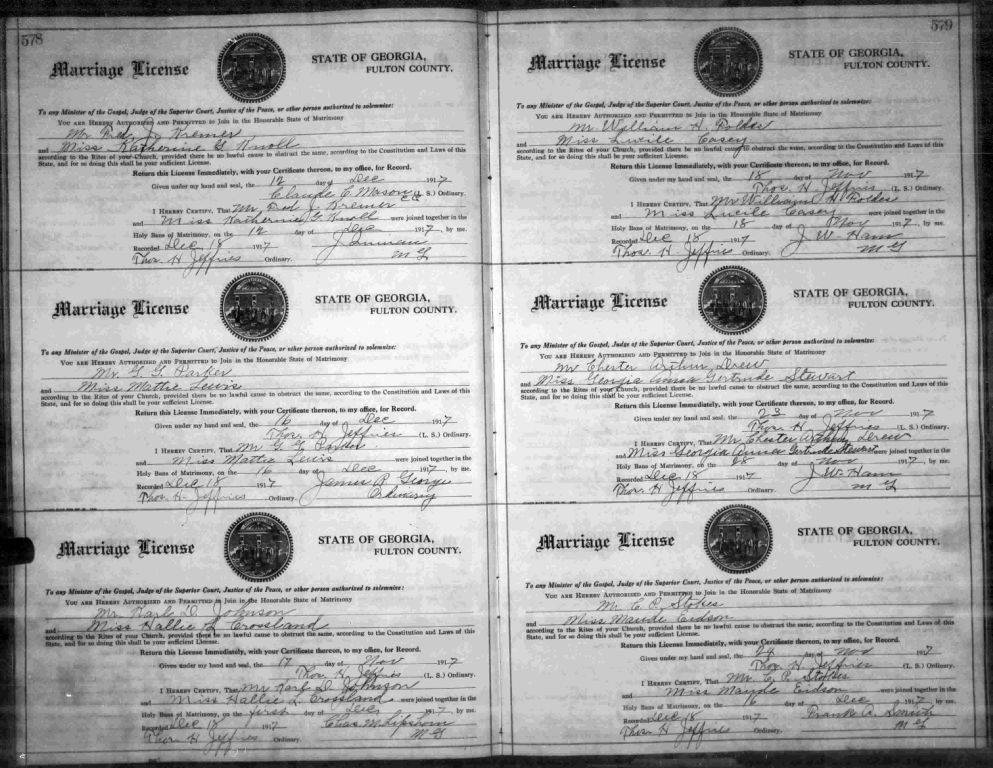 578
Marriage License
STATE OF GEORGIA,
FULTON COUNTY.
To any Minister of the Gospel, Judge of the Superior Court, Justice of the Peace, or other person authorized to solemnize:
YOU ARE HEREBY AUTHORIZED AND PERMITTED to Join in the Honorable State of Matrimony
Mr Fred J. Kremer
and Miss Katherine G Knoll
according to the Rites of your Church, provided there be no lawful cause to obstruct the same, according to the Constitution and Laws of this
State, and for so doing this shall be your sufficient License.
Return this License Immediately, with your Certificate thereon, to my office, for Record.
Given under my hand and seal, the 12 day of Dec 1917
Claude C Mason (L. S.) Ordinary.
I HEREBY CERTIFY, That Mr Fred J Kremer
and Miss Katherine G Knoll were joined together in the
Holy Bans of Matrimony, on the 12 day of Dec 1917, by me.
Recorded Dec 18 1917
Thos. H Jeffries Ordinary. M G
Marriage License
STATE OF GEORGIA,
FULTON COUNTY.
To any Minister of the Gospel, Judge of the Superior Court, Justice of the Peace, or other person authorized to solemnize:
YOU ARE HEREBY AUTHORIZED AND PERMITTED to Join in the Honorable State of Matrimony
Mr. G. G. Parker
and Miss Mattie Lewis
according to the Rites of your Church, provided there be no lawful cause to obstruct the same, according to the Constitution and Laws of this
State, and for so doing this shall be your sufficient License.
Return this License Immediately, with your Certificate thereon, to my office, for Record.
Given under my hand and seal, the 16 day of Dec 1917
Thos. H Jeffries (L. S.) Ordinary.
I HEREBY CERTIFY, That Mr G. G. Parker
and Miss Mattie Lewis were joined together in the
Holy Bans of Matrimony, on the 16 day of Dec 1917, by me.
Recorded Dec 18 1917 James R George
Thos H Jeffries Ordinary.
Marriage License
STATE OF GEORGIA,
FULTON COUNTY.
To any Minister of the Gospel, Judge of the Superior Court, Justice of the Peace, or other person authorized to solemnize:
YOU ARE HEREBY AUTHORIZED AND PERMITTED to Join in the Honorable State of Matrimony
Mr. Karl D. Johnson
and Miss Hallie L Crossland
according to the Rites of your Church, provided there be no lawful cause to obstruct the same, according to the Constitution and Laws of this
State, and for so doing this shall be your sufficient License.
Return this License Immediately, with your Certificate thereon, to my office, for Record.
Given under my hand and seal, the 17 day of Nov 1917
Thos H Jeffries (L. S.) Ordinary.
I HEREBY CERTIFY, That Mr Karl D. Johnson
and Miss Hallie L. Crossland were joined together in the
Holy Bans of Matrimony, on the first day of Dec 1917, by me.
Recorded Dec 18 1917 Chas M Lipsham
Thos H Jeffries Ordinary. M G
579
Marriage License
STATE OF GEORGIA,
FULTON COUNTY.
To any Minister of the Gospel, Judge of the Superior Court, Justice of the Peace, or other person authorized to solemnize:
YOU ARE HEREBY AUTHORIZED AND PERMITTED to Join in the Honorable State of Matrimony
Mr. William H. Foldes
and Miss Lucile Casey
according to the Rites of your Church, provided there be no lawful cause to obstruct the same, according to the Constitution and Laws of this
State, and for so doing this shall be your sufficient License.
Return this License Immediately, with your Certificate thereon, to my office, for Record.
Given under my hand and seal, the 18 day of Nov 1917
Thos. H Jeffries (L. S.) Ordinary.
I HEREBY CERTIFY, That Mr William H Foldes
and Miss Lucile Casey were joined together in the
Holy Bans of Matrimony, on the 18 day of Nov 1917, by me.
Recorded Dec 18 1917 J W. Ham
Thos. H Jeffries Ordinary. M G
Marriage License
STATE OF GEORGIA,
FULTON COUNTY.
To any Minister of the Gospel, Judge of the Superior Court, Justice of the Peace, or other person authorized to solemnize:
YOU ARE HEREBY AUTHORIZED AND PERMITTED to Join in the Honorable State of Matrimony
Mr Chester Arthur Drew
and Miss Georgia Anna Gertrude Stewart
according to the Rites of your Church, provided there be no lawful cause to obstruct the same, according to the Constitution and Laws of this
State, and for so doing this shall be your sufficient License.
Return this License Immediately, with your Certificate thereon, to my office, for Record.
Given under my hand and seal, the 23 day of Nov 1917
Thos. H Jeffries (L. S.) Ordinary.
I HEREBY CERTIFY, That Mr Chester Arthur Drew
and Miss Georgia Anna Gertrude Stewart were joined together in the
Holy Bans of Matrimony, on the 28 day of Nov 1917, by me.
Recorded Dec 18 1917 J W. Ham
Thos. H Jeffries Ordinary. M G
Marriage License
STATE OF GEORGIA,
FULTON COUNTY.
To any Minister of the Gospel, Judge of the Superior Court, Justice of the Peace, or other person authorized to solemnize:
YOU ARE HEREBY AUTHORIZED AND PERMITTED to Join in the Honorable State of Matrimony
Mr. C. P. Stokes
and Miss Maude Eidson
according to the Rites of your Church, provided there be no lawful cause to obstruct the same, according to the Constitution and Laws of this
State, and for so doing this shall be your sufficient License.
Return this License Immediately, with your Certificate thereon, to my office, for Record.
Given under my hand and seal, the 24 day of Nov 1917
Thos. H Jeffries (L. S.) Ordinary.
I HEREBY CERTIFY, That Mr. C. P. Stokes
and Miss Maude Eidson were joined together in the
Holy Bans of Matrimony, on the 16 day of Dec 1917, by me.
Recorded Dec 18 1917 Frank A.
Thos. H Jeffries Ordinary. M G